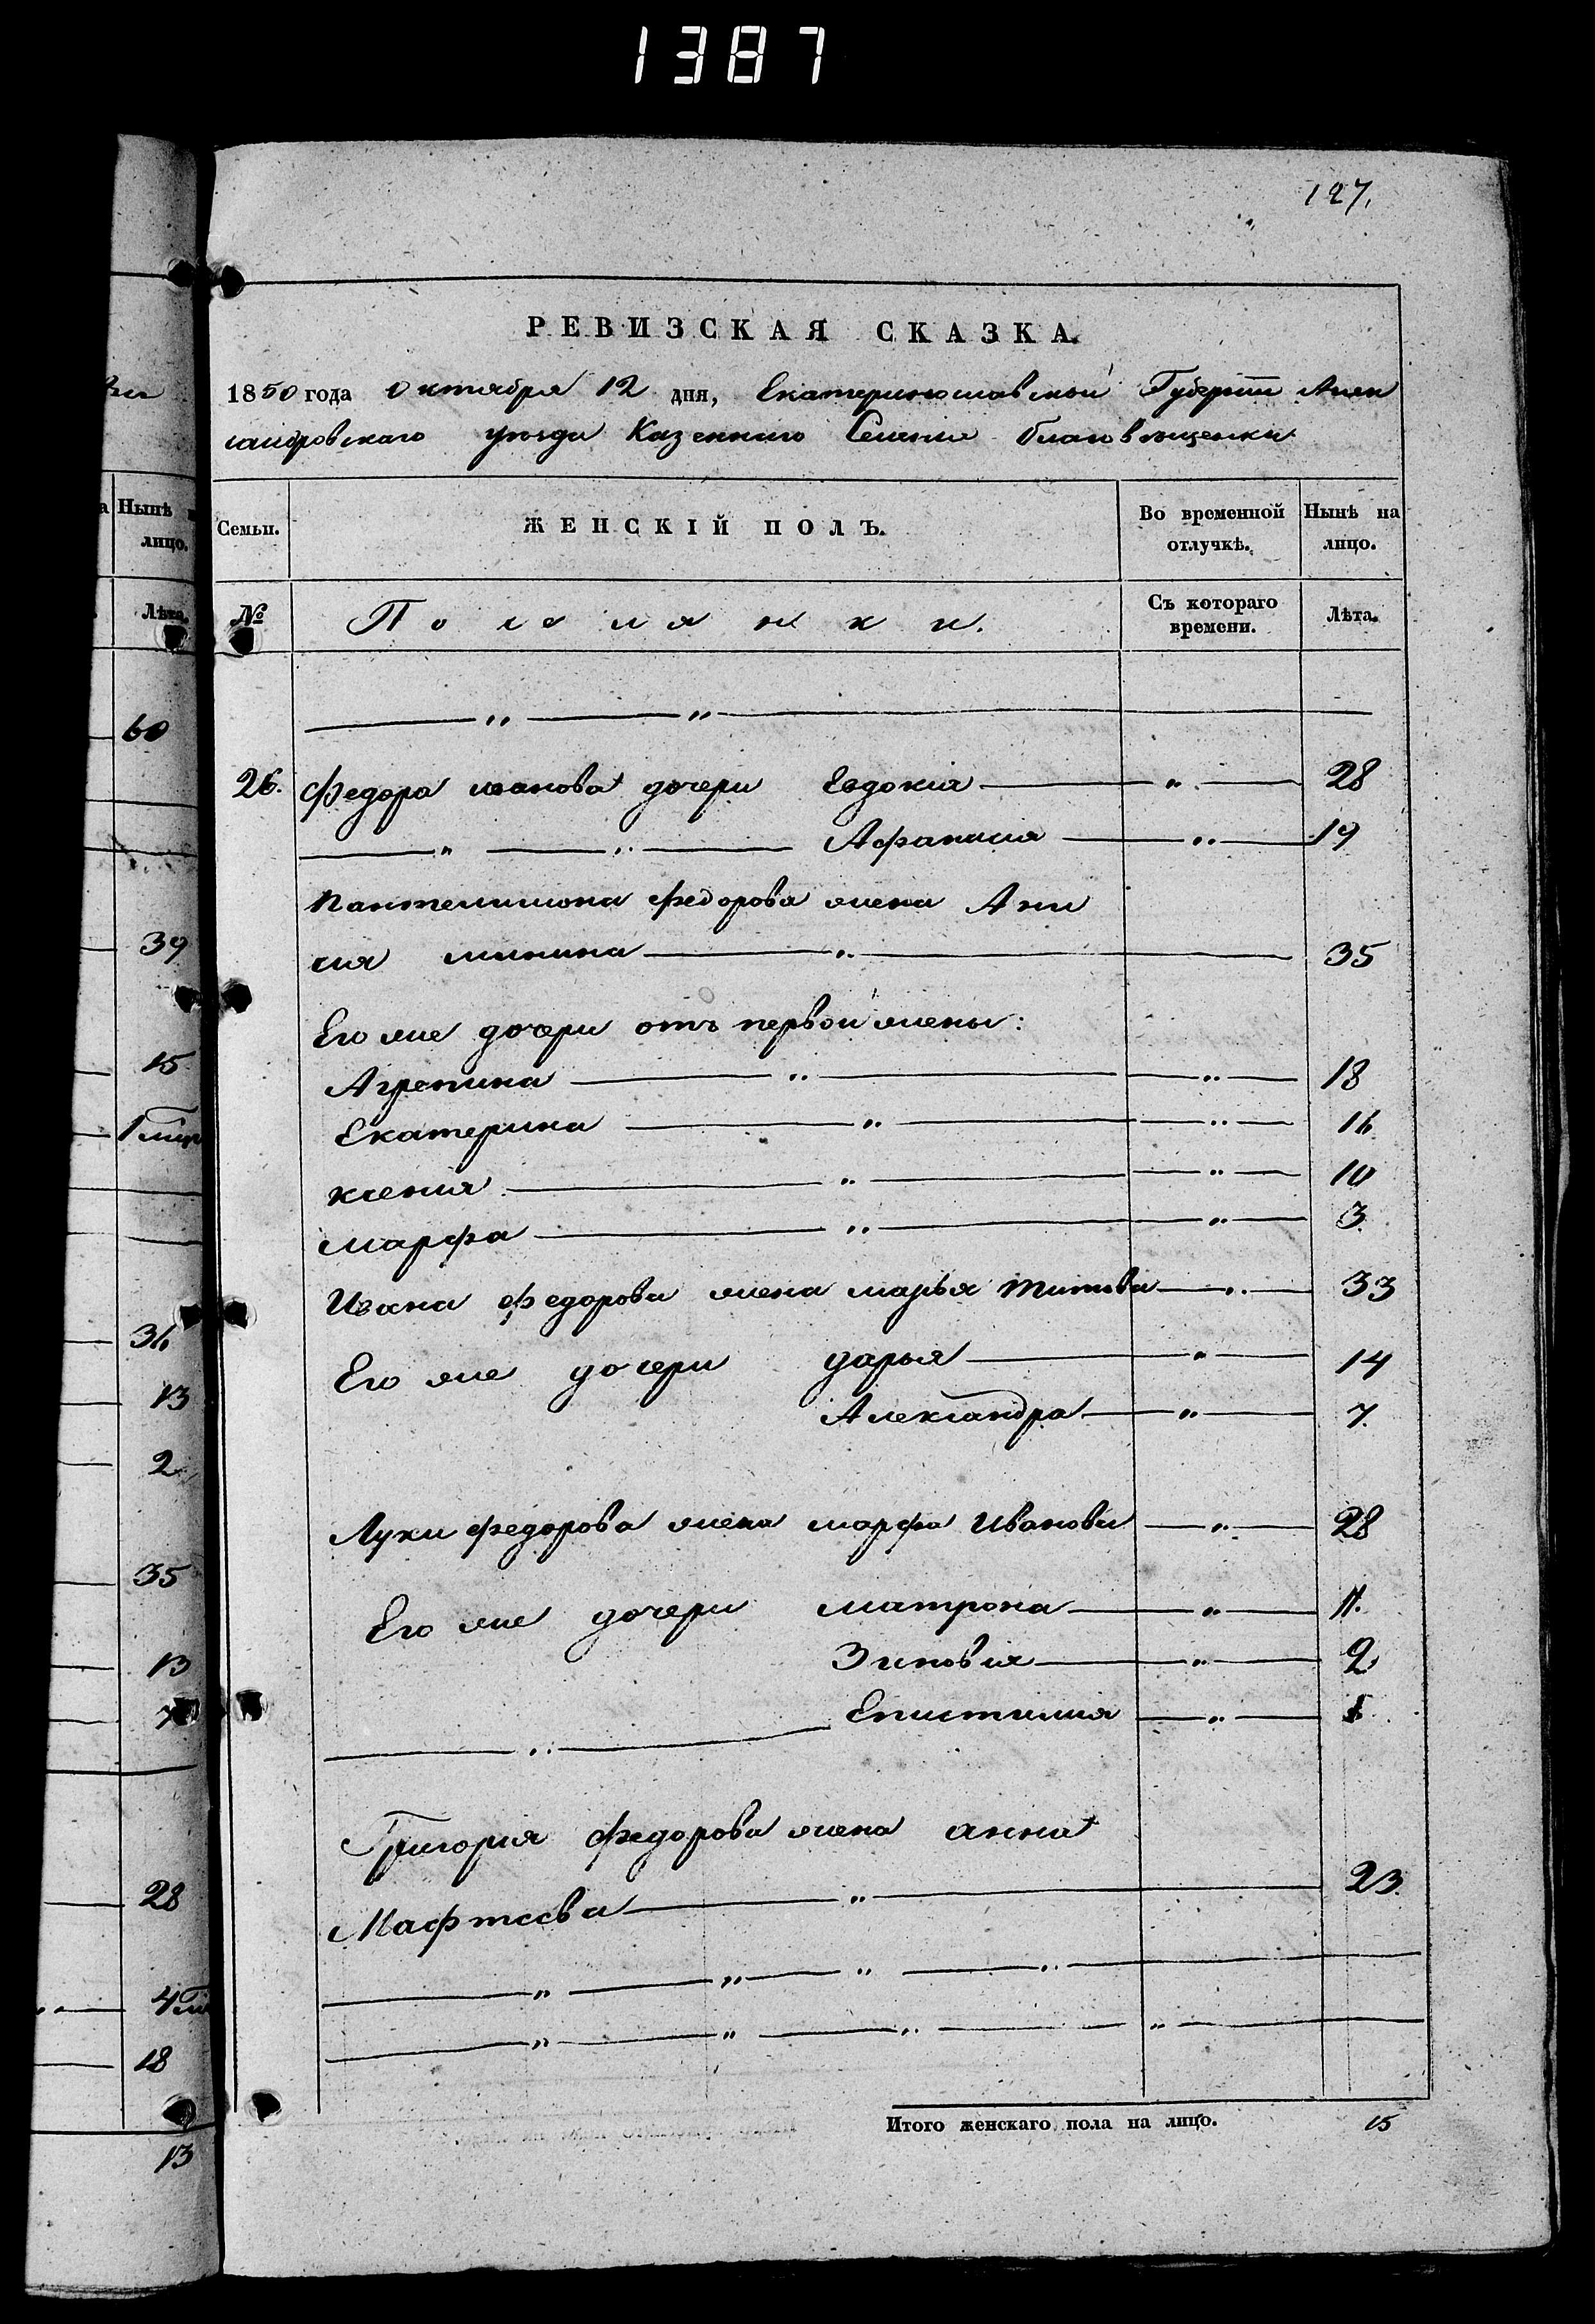 1387
127.
РЕВИЗСКАЯ СКАЗКА.
1850 года Октября 12 дня, Екатеринославской Губернии Алек
сандровскаго уезда Казеннаго Селения благовещенки
Нынѣ
лицо.
Лѣта.
Семьи.
ЖЕНСКІЙ ПОЛЪ.
Во временной
отлучкѣ.
Нынѣ на
лицо.
№
Поселянки.
Съ котораго
времени.
Лѣта.
26. Федора иванова дочери Евдокия 28
Афанасия 19
Пантелимона федорова жена Ани
сия минина 35
Его же дочери отъ первой жены:
Агрепина 18
Екатерина 16
ксения 10
марфа 3
Ивана федорова жена марья титова 33
Его же дочери дарья 14
Александра 7.
Луки федорова жена марфа Иванова 28
Его же дочери матрона 11.
Зиновия 2
Епистимия
Григория федорова жена анна
Мафтеева 23.
Итого женскаго пола на лицо. 15
60
39
15
36
13
2
35
13
28
18
13